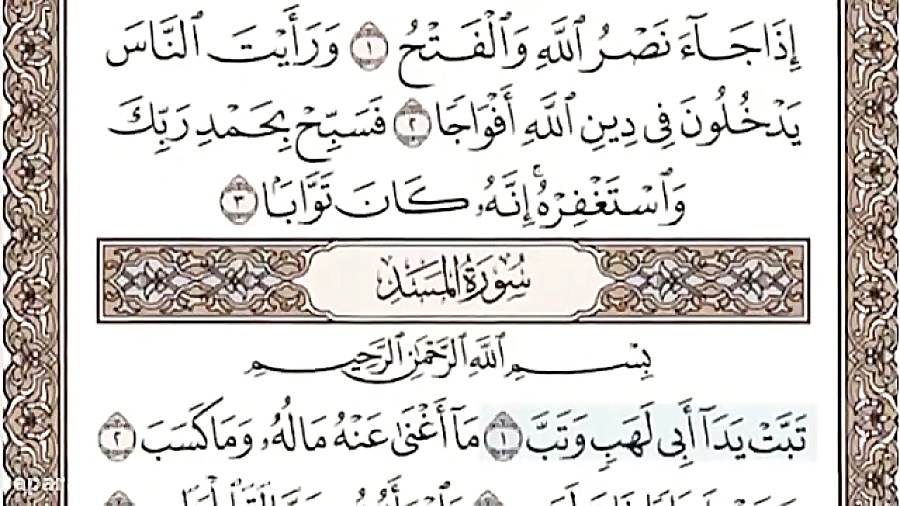 إِذَا جَآءَ نَصْرُ ٱللَّهِ وَٱلْفَتْحُ ١ وَرَأَيْتَ ٱلنَّاسَ
يَدْخُلُونَ فِى دِينِ ٱللَّهِ أَفْوَاجًا ٢ فَسَبِّحْ بِحَمْدِ رَبِّكَ
وَٱسْتَغْفِرْهُ ۚ إِنَّهُۥ كَانَ تَوَّابًۢا ٣
سُورَةُ المَسَدِ
بِسْمِ ٱللَّهِ ٱلرَّحْمَٰنِ ٱلرَّحِيمِ
تَبَّتْ يَدَآ أَبِى لَهَبٍ وَتَبَّ ١ مَآ أَغْنَىٰ عَنْهُ مَالُهُۥ وَمَا كَسَبَ ٢